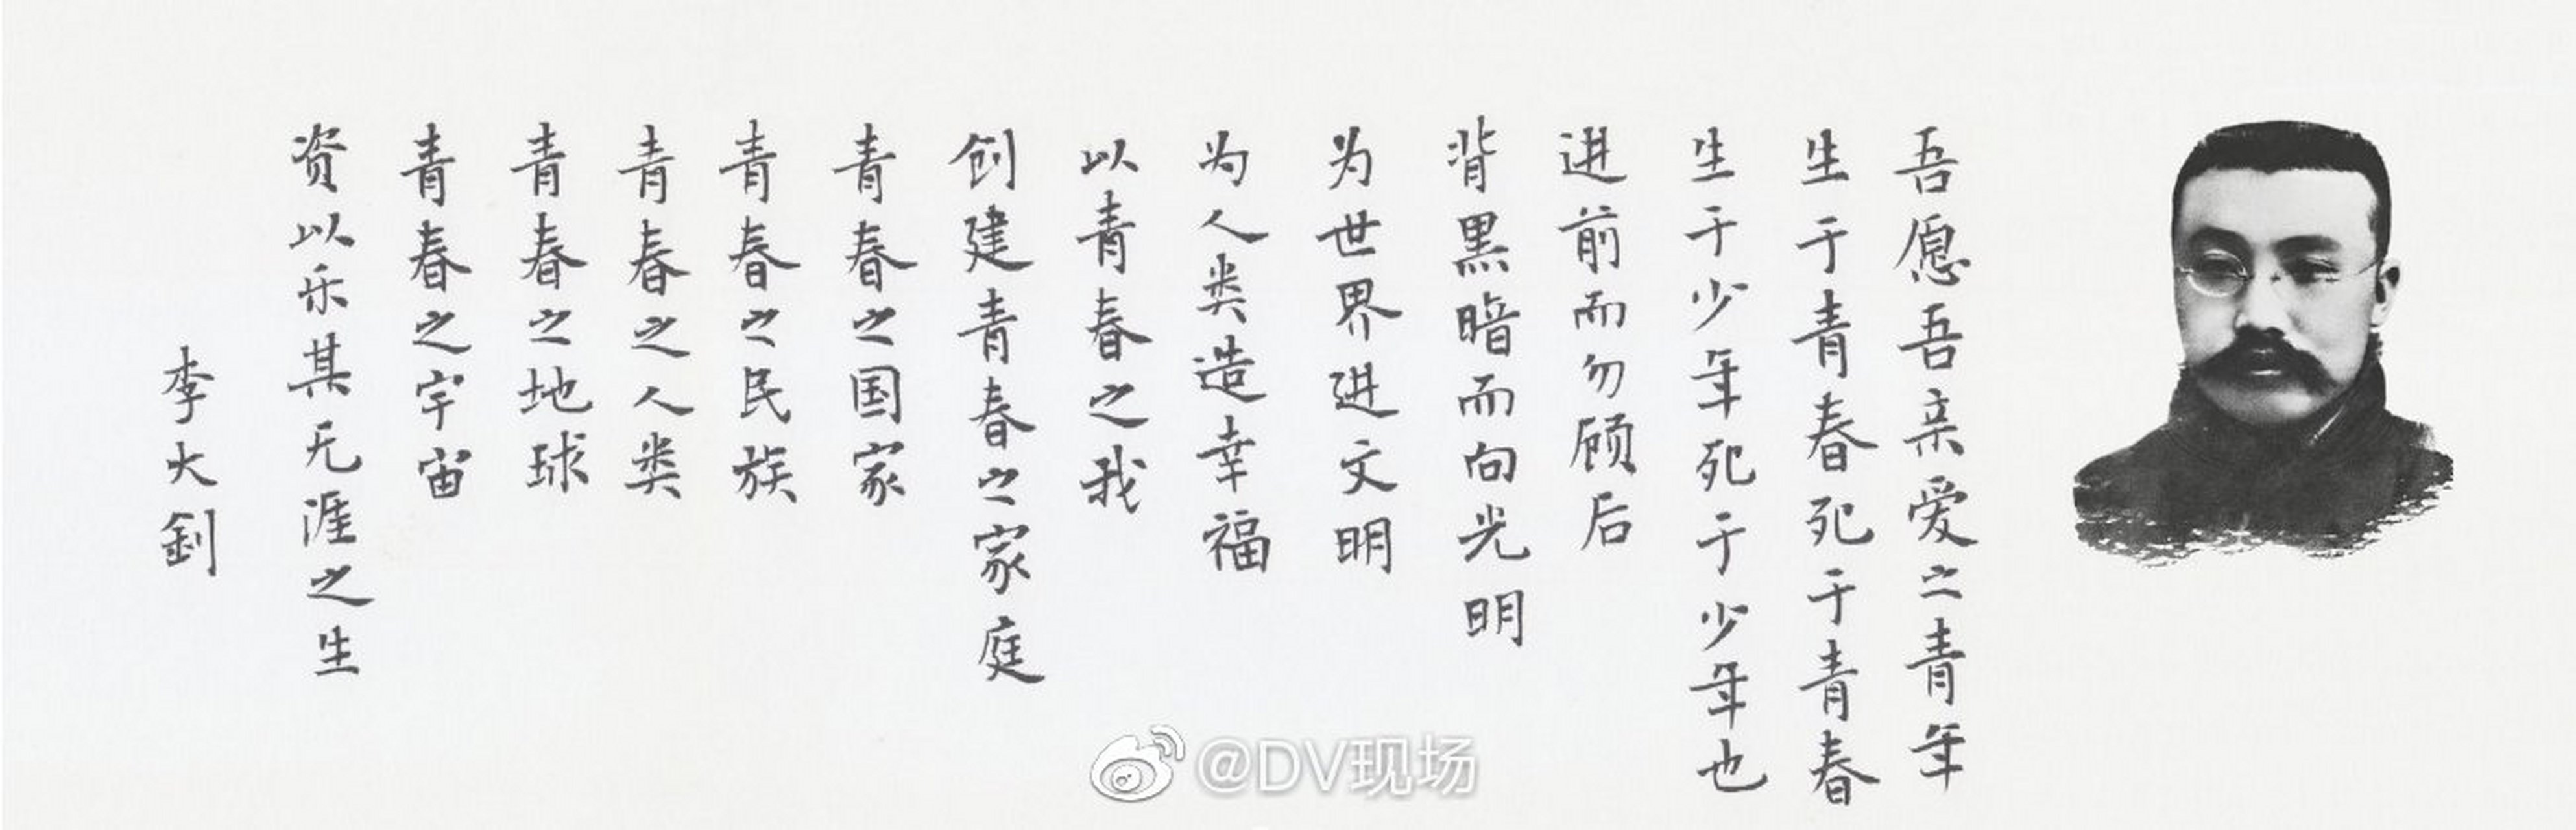 吾愿吾亲爱之青年
生于青春死于青春
生于少年死于少年也
进前而勿顾后
背黑暗而向光明
为世界进文明
为人类造幸福
以青春之我
创建青春之家庭
青春之国家
青春之民族
青春之人类
青春之地球
青春之宇宙
资以乐其无涯之生
李大釗
@DV现场